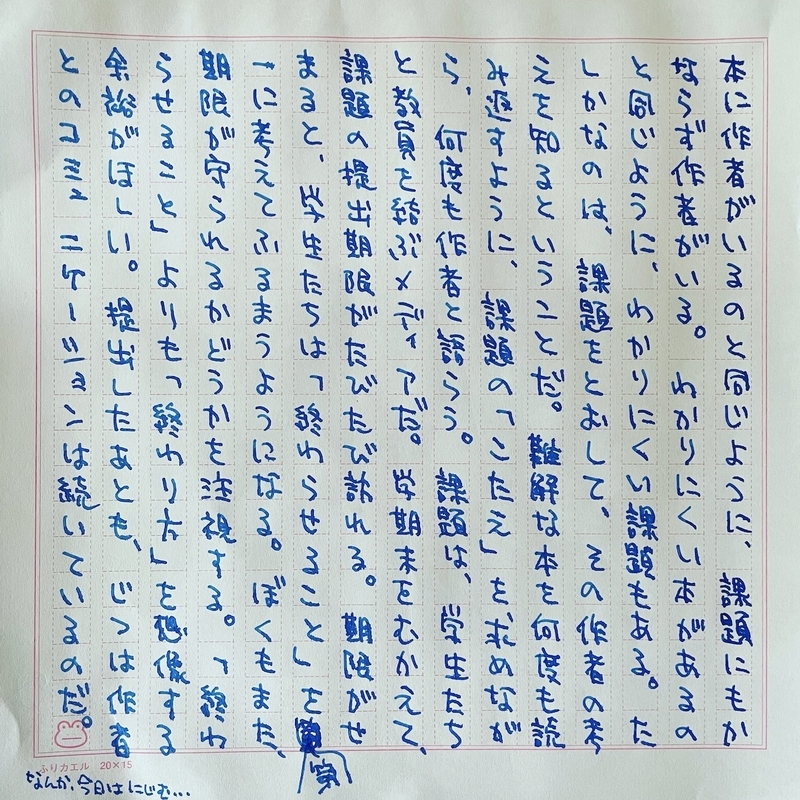 本に作者がいるのと同じように、課題にもか
ならず作者がいる。わかりにくい本があるの
と同じように、わかりにくい課題もある。た
しかなのは、課題をとおして、その作者の考
えを知るということだ。難解な本を何度も読
み返すように、課題の「こたえ」を求めなが
ら、何度も作者と語らう。課題は、学生たち
と教員を結ぶメディアだ。学期末をむかえて、
課題の提出期限がたびたび訪れる。期限がせ
まると、学生たちは「終わらせること」を第
一に考えてふるまうようになる。ぼくもまた、
期限が守られるかどうかを注視する。「終わ
らせること」よりも「終わり方」を想像する
余裕がほしい。提出したあとも、じつは作者
とのコミュニケーションは続いているのだ。
ふりカエル 20×15
なんか、今日はにじむ…